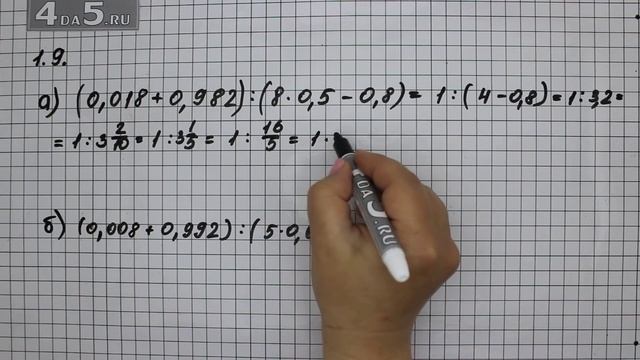 4DA5.RU
1.9.
а) (0,018+0,982):(8·0,5-0,8)= 1:(4-0,8)=1:3,2=
=1:3 2/10=1:3 1/5= 1: 16/5= 1·
б) (0,008+0,992):(5·0,
DA5.RU